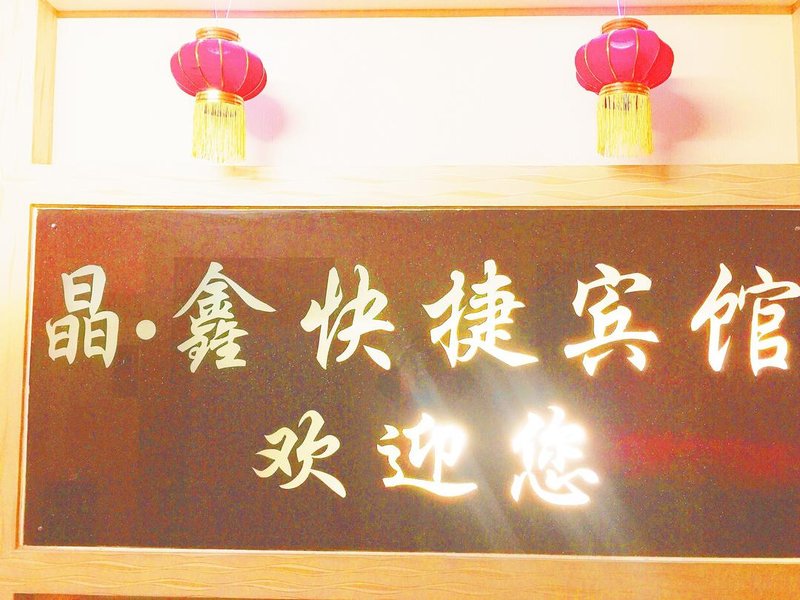 晶·鑫快捷宾馆
欢迎您